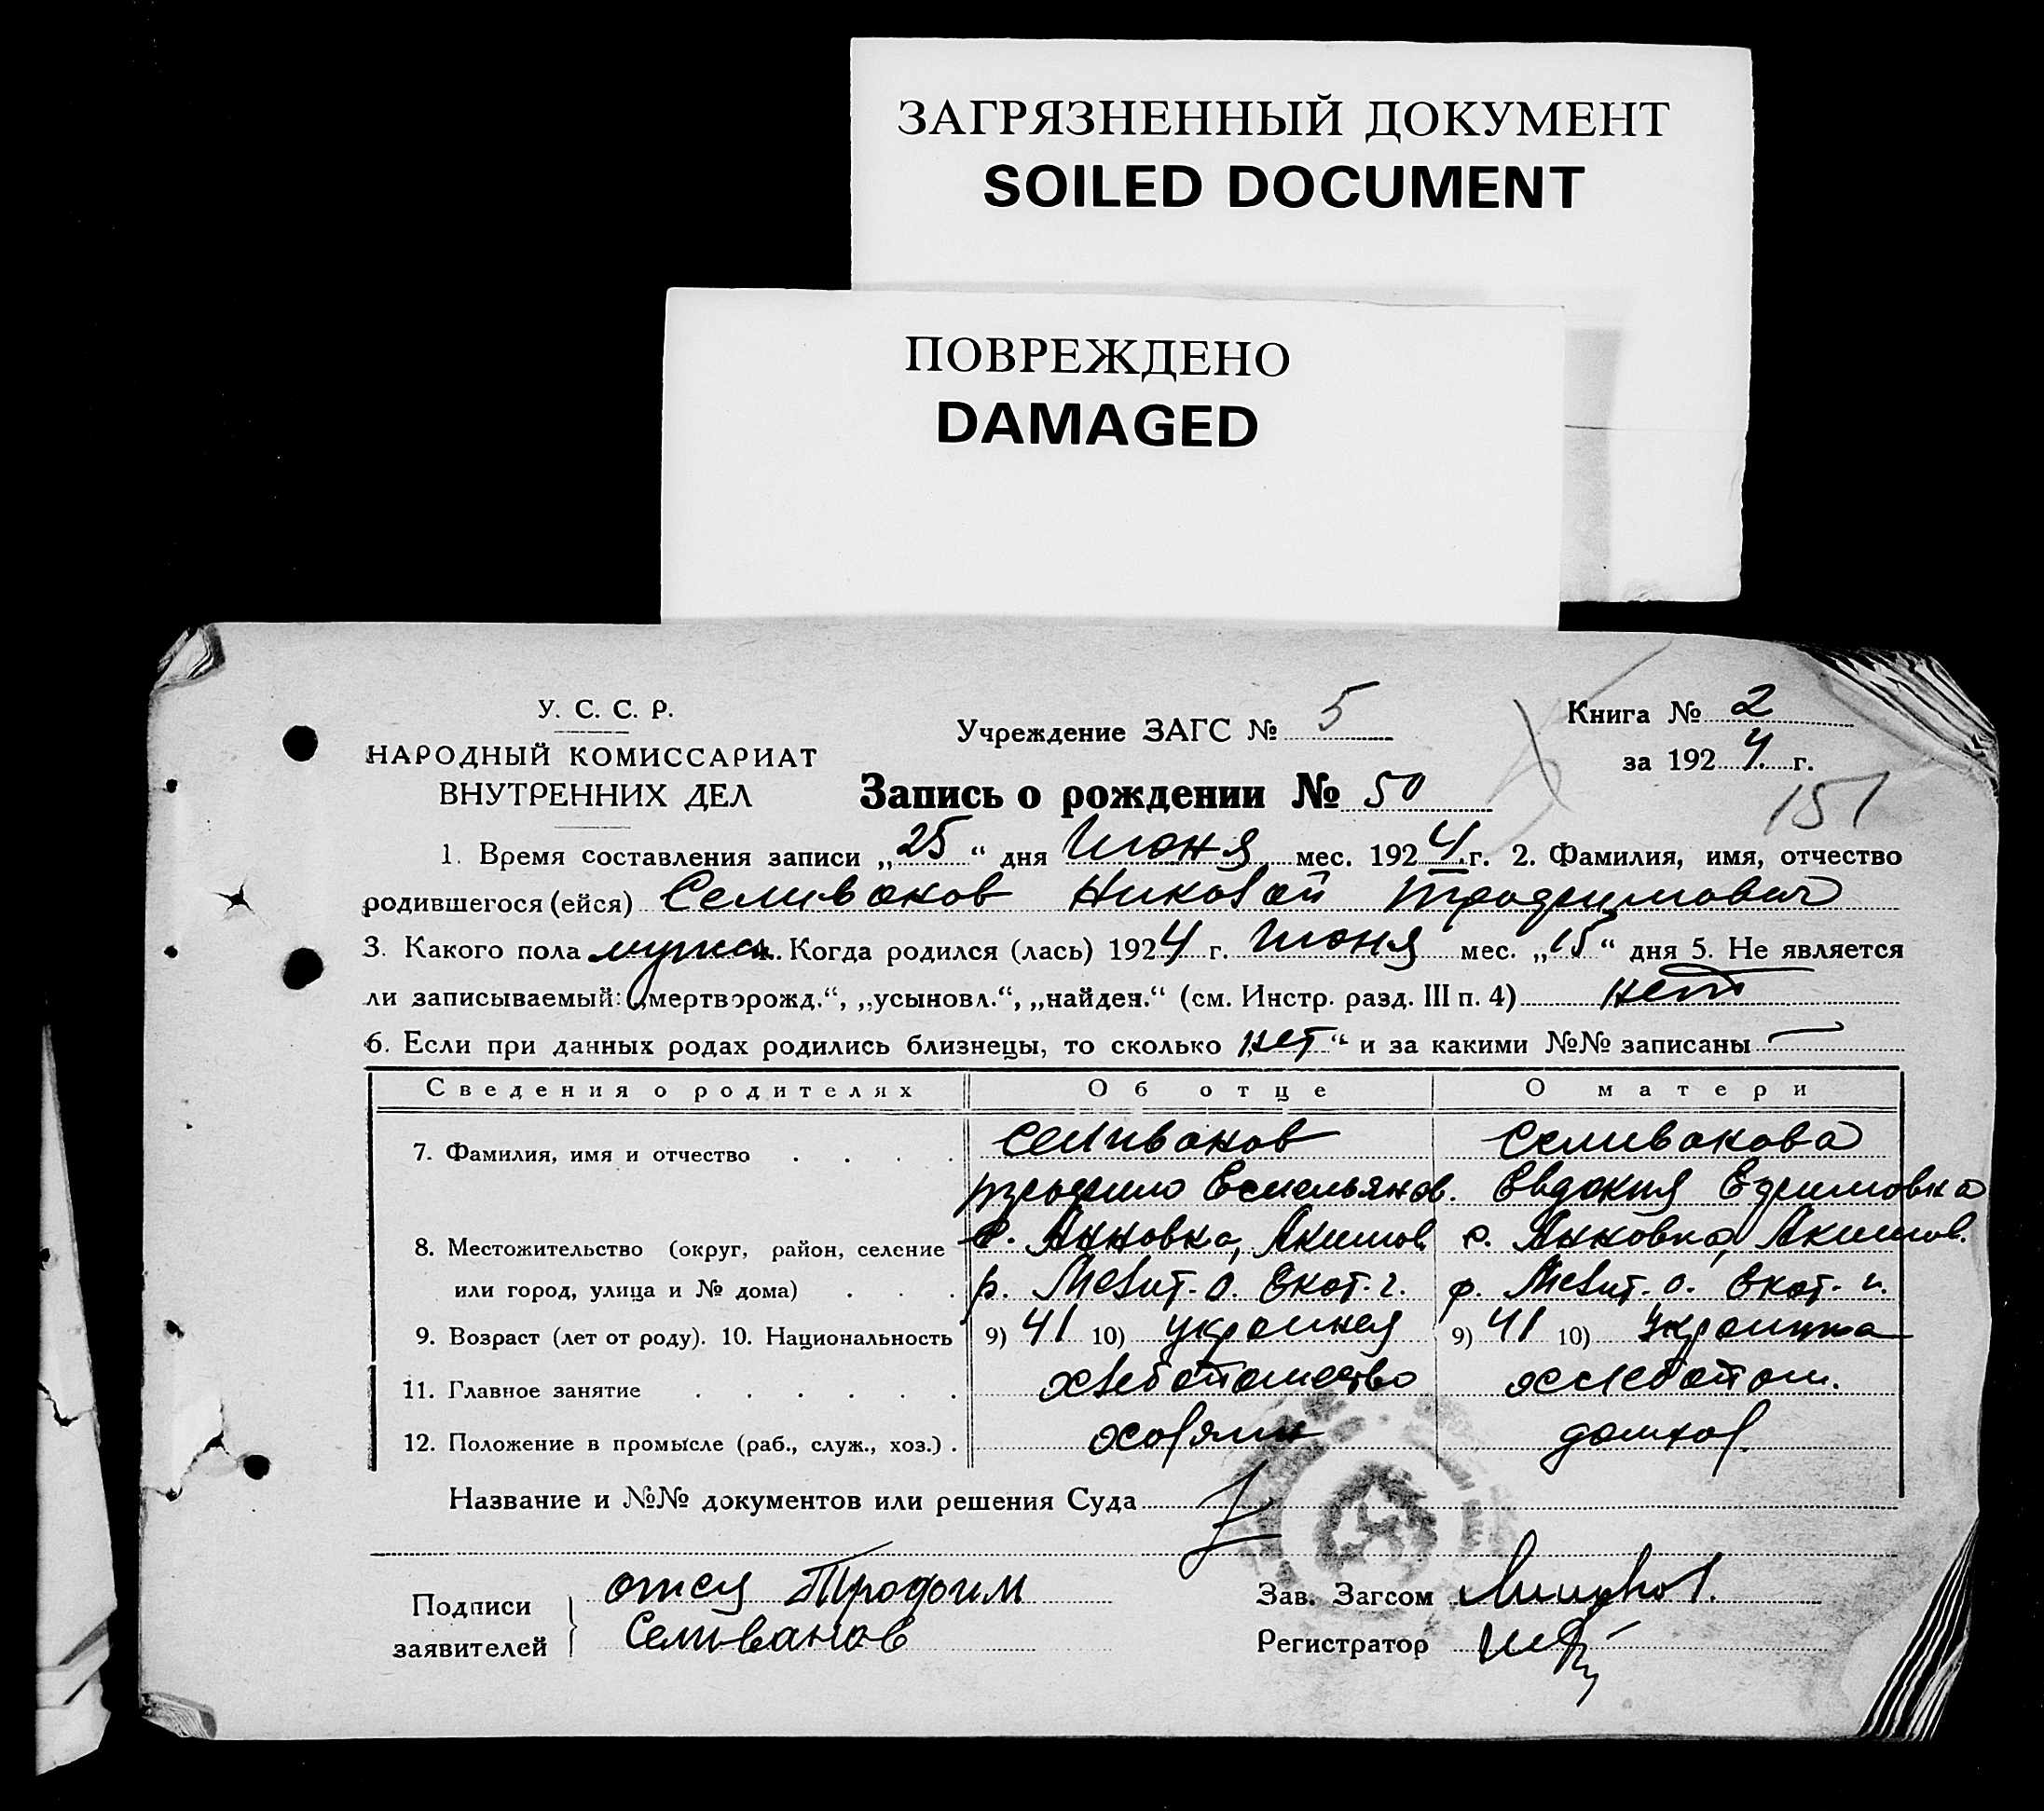 ЗАГРЯЗНЕННЫЙ ДОКУМЕНТ
SOILED DOCUMENT
ПОВРЕЖДЕНО
DAMAGED
У. С. С. Р.
НАРОДНЫЙ КОМИССАРИАТ
ВНУТРЕННИХ ДЕЛ
Учреждение ЗАГС № 5
Книга № 2
за 1924 г.
151
Запись о рождении № 50
1. Время составления записи „25“ дня Июня мес. 1924 г. 2. Фамилия, имя, отчество
родившегося (ейся) Селиванов Николай Трофимович
3. Какого пола мужск. Когда родился (лась) 1924 г. Июня мес. „15“ дня 5. Не является
ли записываемый: „мертворожд.“, „усыновл.“, „найден.“ (см. Инстр. разд. III п. 4) нет
6. Если при данных родах родились близнецы, то сколько „нет“ и за какими №№ записаны —
Сведения о родителях Об отце О матери
7. Фамилия, имя и отчество Селиванов Селиванова
Емельянов. Евдокия Ефимовна
8. Местожительство (округ, район, селение с. Анновка, Акимов. с. Анновка, Акимов.
или город, улица и № дома) р. Мелит. о. Екат. г. р. Мелит. о. Екат. г.
9. Возраст (лет от роду). 10. Национальность 9) 41 10) украинец 9) 41 10) Украинка
11. Главное занятие хлебопашество хлебопаш.
12. Положение в промысле (раб., служ., хоз.) хозяин домхоз.
Название и №№ документов или решения Суда
Подписи заявителей отец Трофим
Селиванов
Зав. Загсом
Регистратор